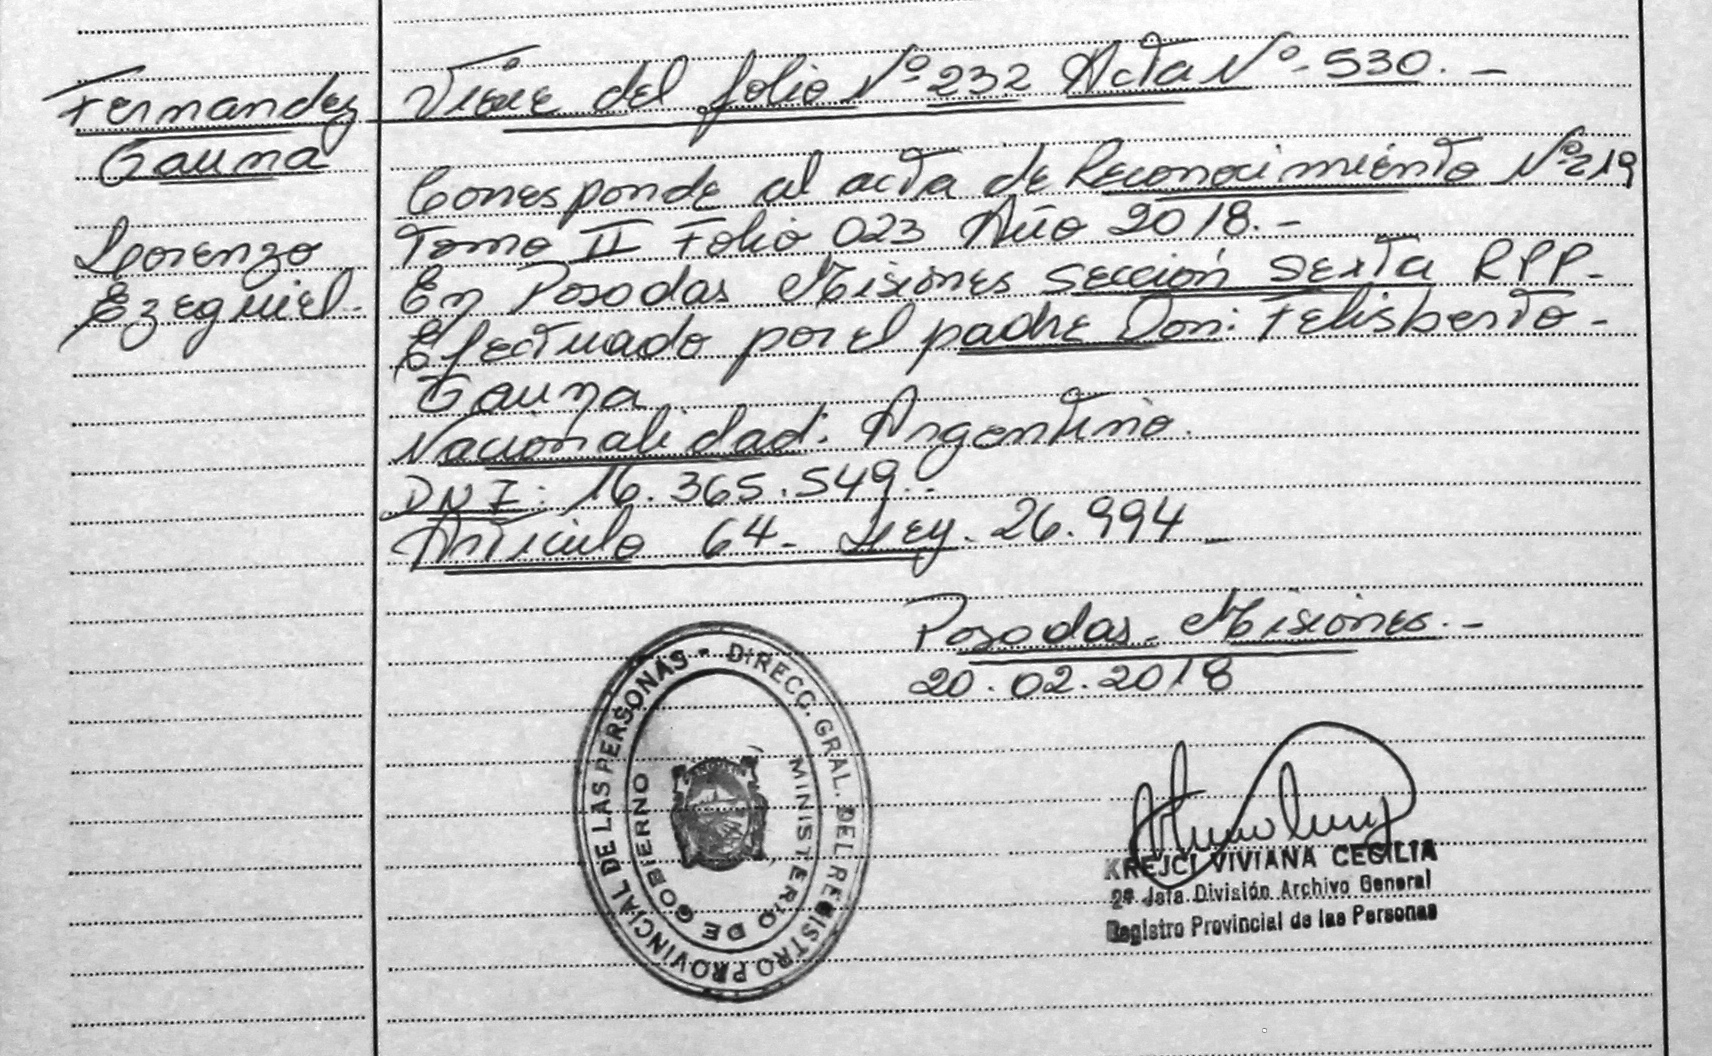 Fernandez
Gauna
Lorenzo
Ezequiel.
Viene del folio Nº 232 Acta Nº 530. -
Corresponde al acta de Reconocimiento Nº 219
Tomo II Folio 023 Año 2018. -
En Posadas Misiones sección sexta RPP-
Efectuado por el padre Don: Felisberto -
Gauna
Nacionalidad: Argentino.
DNI: 16.365.549..
Artículo 64- Ley. 26.994 -
Posadas - Misiones. -
20.02.2018
DIRECC. GRAL. DEL REGISTRO PROVINCIAL DE LAS PERSONAS -
MINISTERIO DE GOBIERNO
KREJCI VIVIANA CECILIA
2ª Jefa División Archivo General
Registro Provincial de las Personas